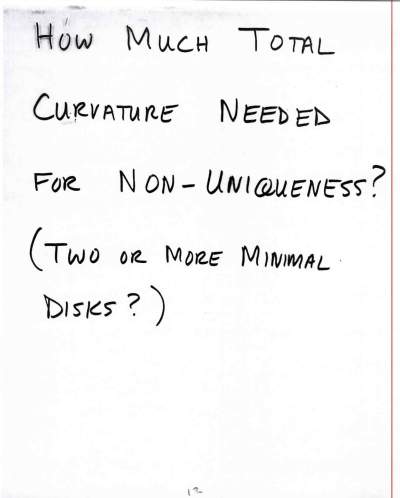 HOW MUCH TOTAL
CURVATURE NEEDED
FOR NON-UNIQUENESS?
(TWO OR MORE MINIMAL
DISKS?)
12